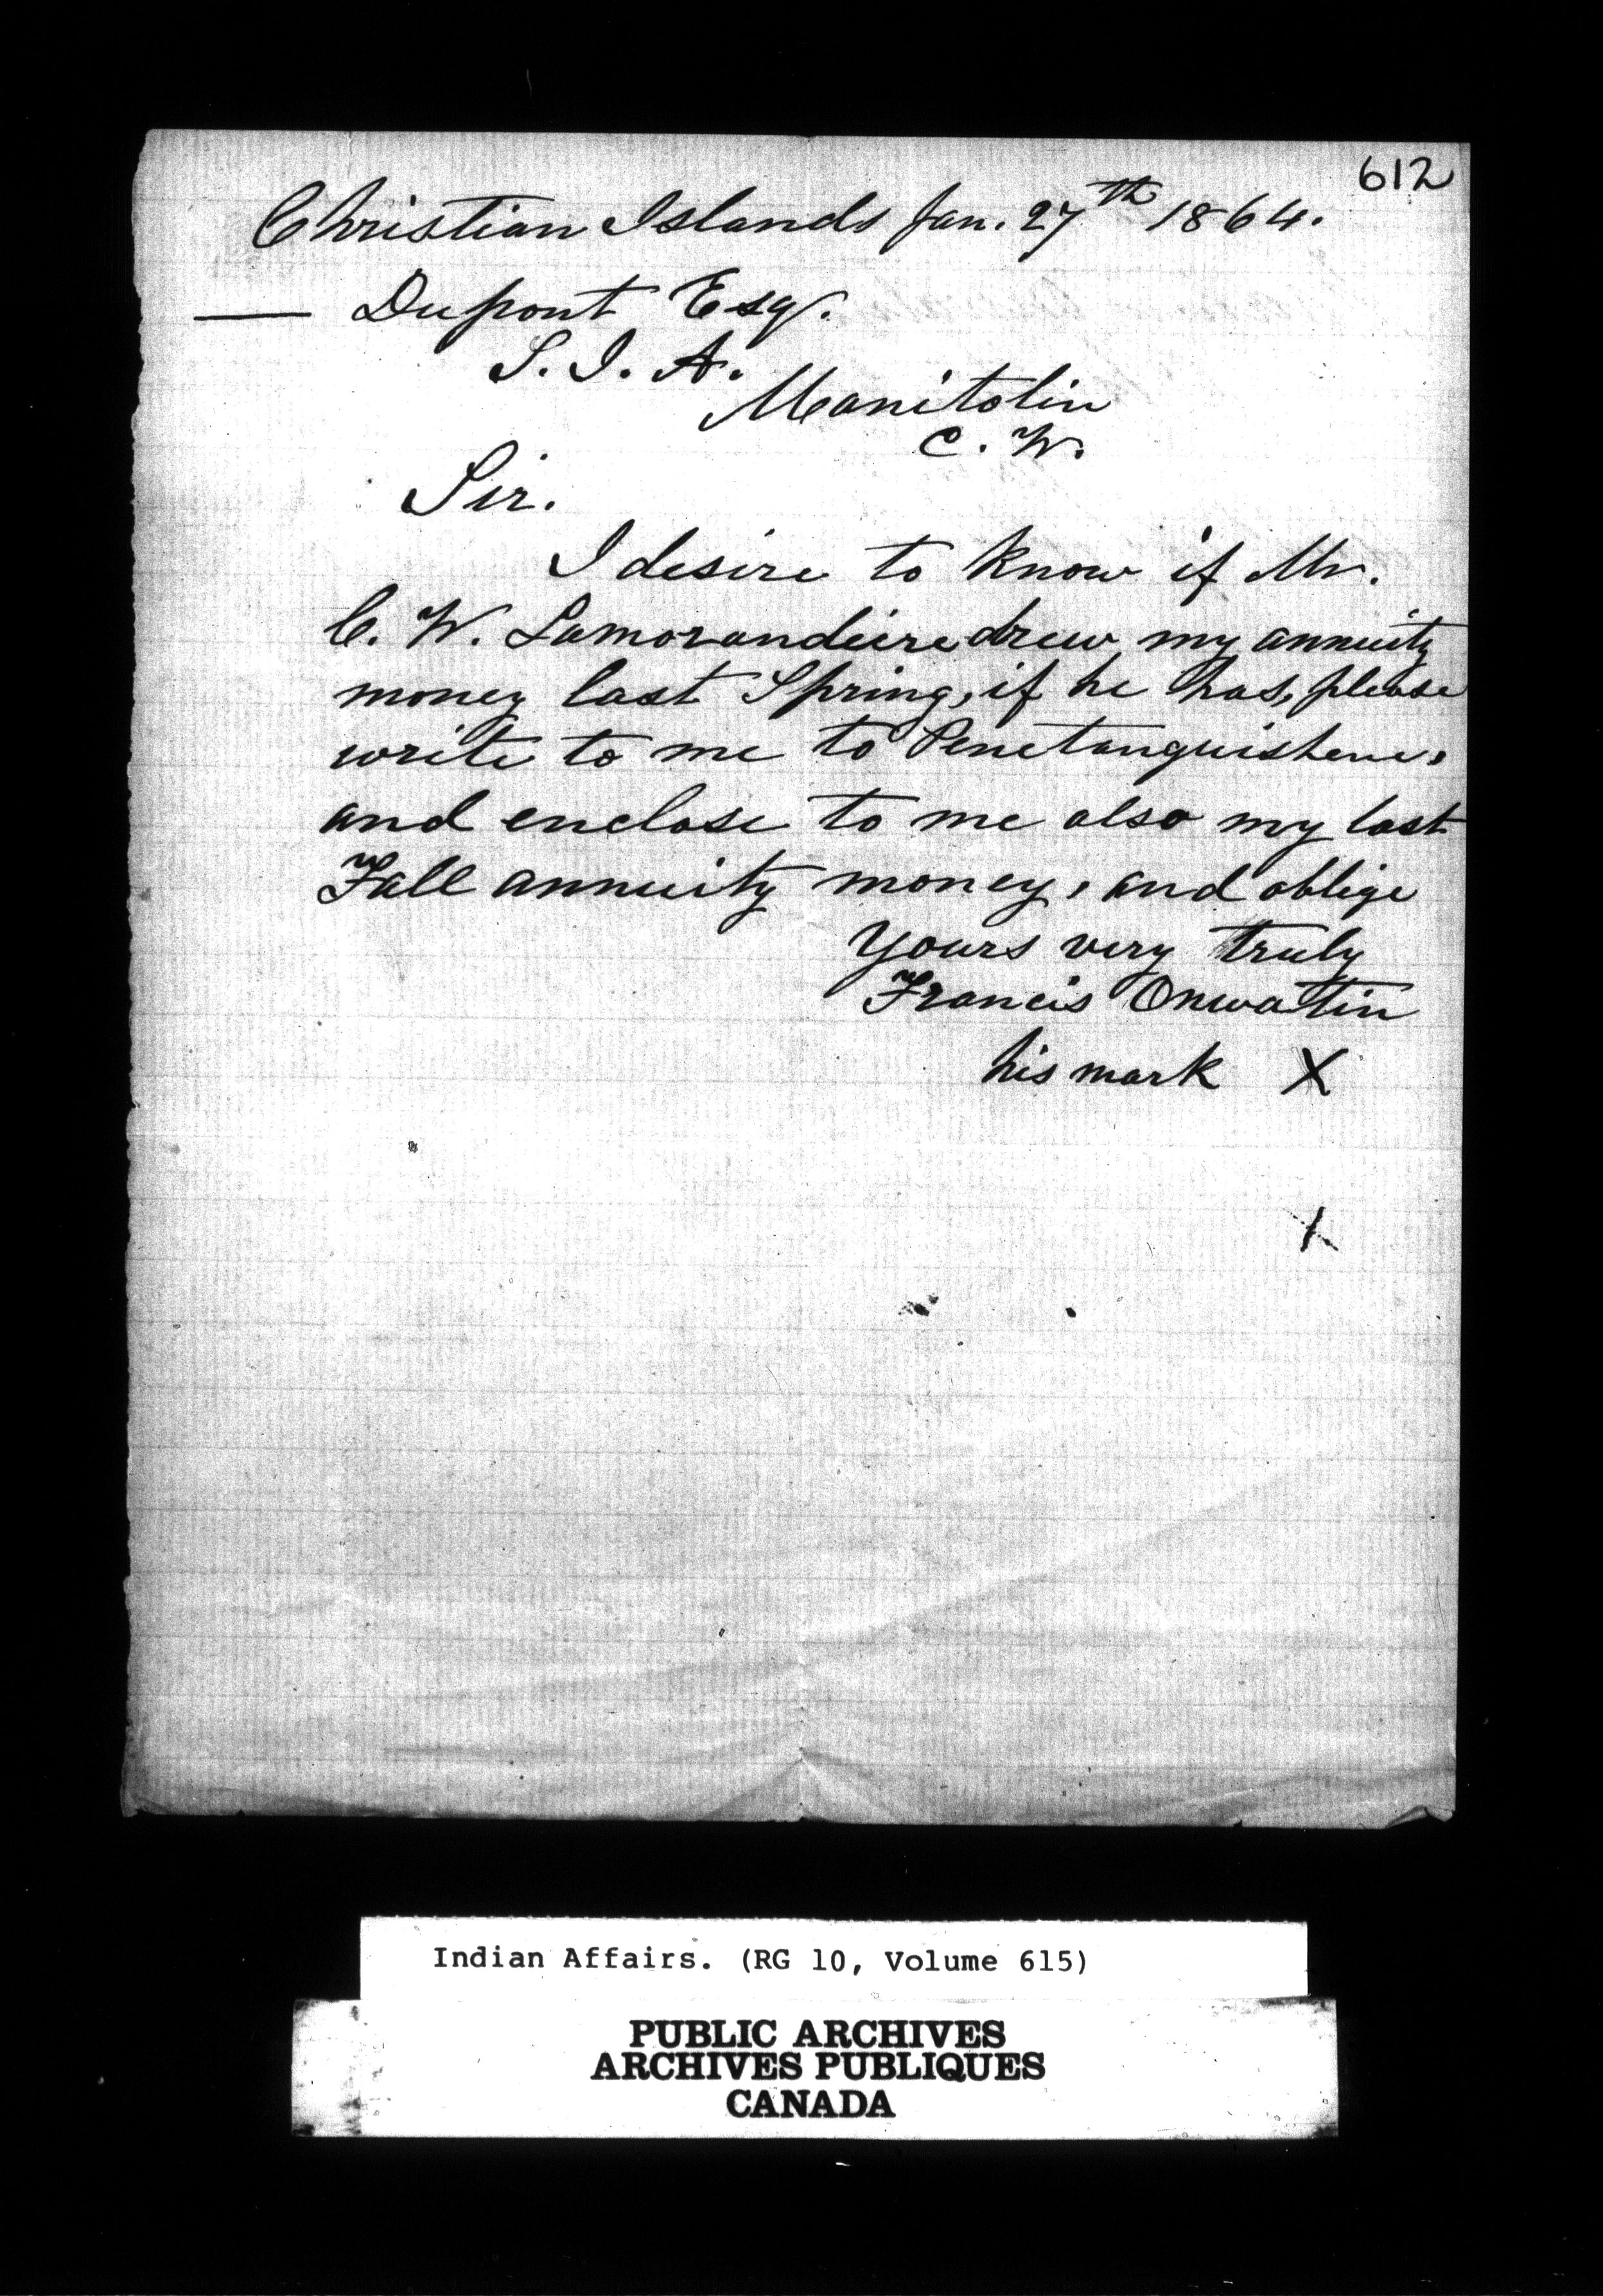 612
Christian Islands Jan. 27th 1864.
— Dupont Esq.
S. I. A.
Manitolin
C. W.
Sir.
I desire to know if Mr.
C. W. Lamorandiere drew my annuity
money last Spring, if he has, please
write to me to Penetanguishene,
and enclose to me also my last
Fall annuity money, and oblige
Yours very truly
Francis Onwatin
his mark X
Indian Affairs. (RG 10, Volume 615)
PUBLIC ARCHIVES
ARCHIVES PUBLIQUES
CANADA